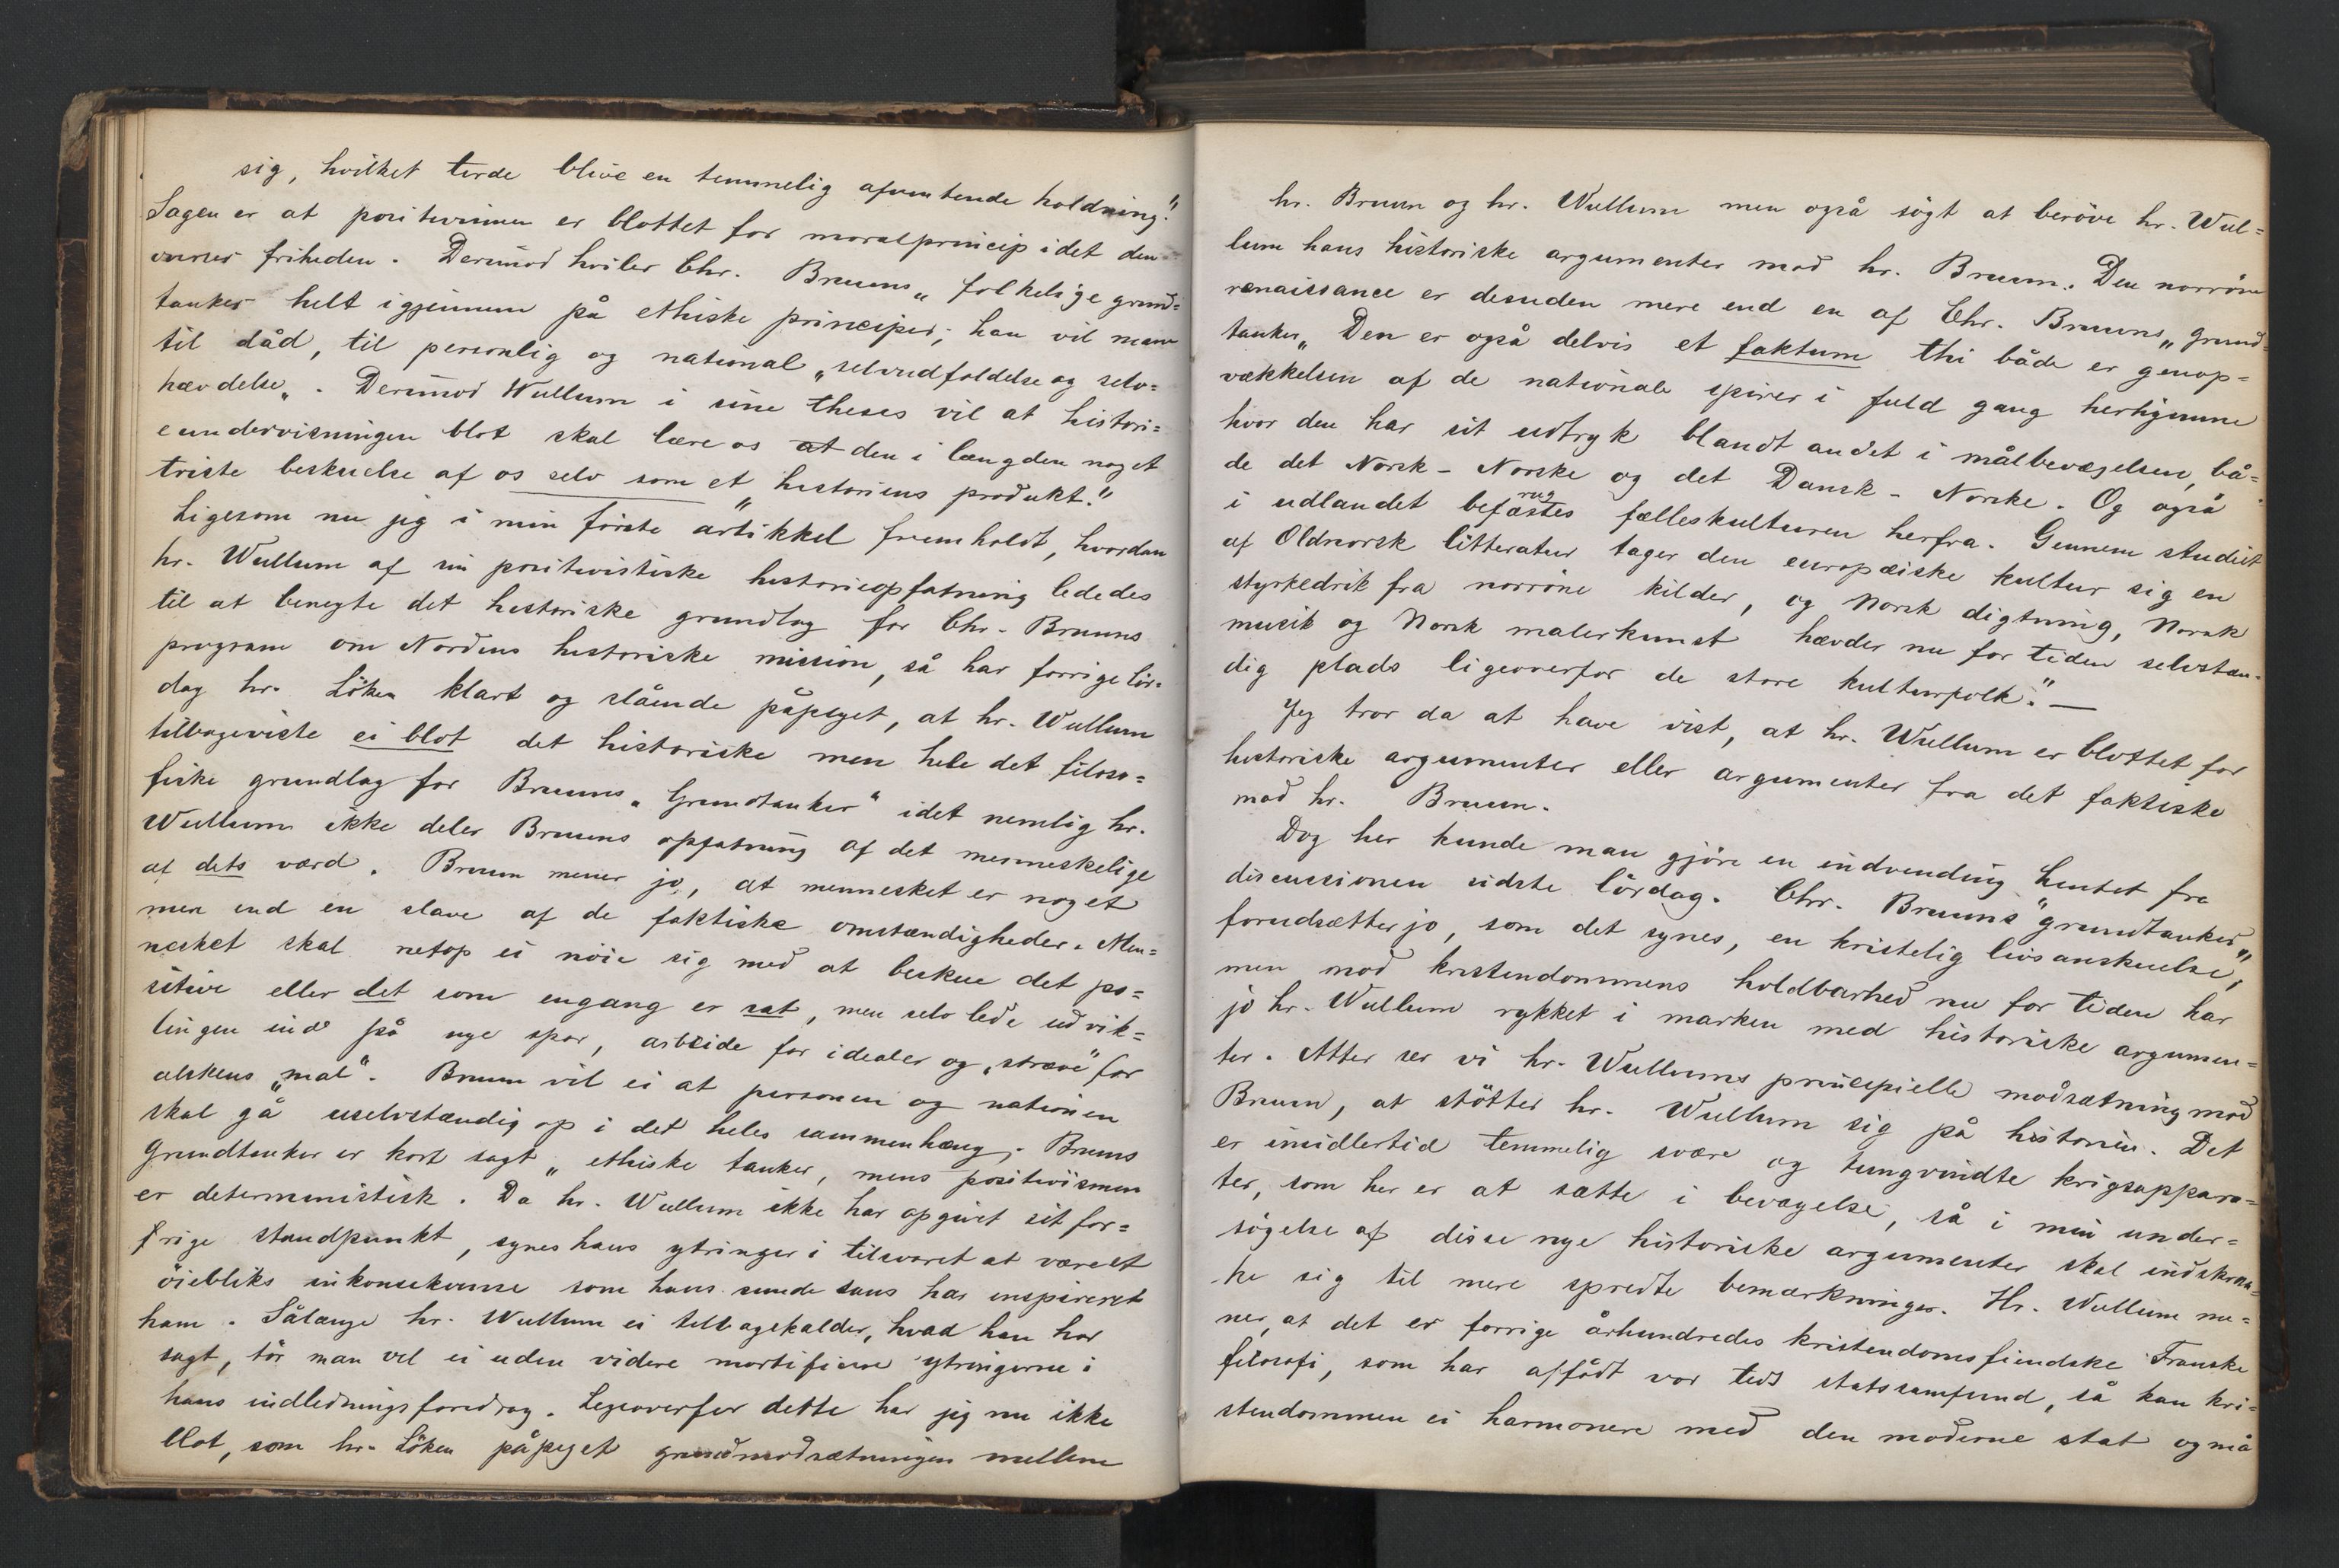 sig, hvilket turde blive en temmelig afventende holdning."
Sagen er at positivismen er blottet for moralprincip idet den
friheden. Derimod hviler Chr. Bruuns „folkelige grund=
tanker helt igjennem på ethiske principer; han vil mane
til dåd, til personlig og national „selvudfoldelse og selv=
hævdelse„. Derimod Wullum i sine theses vil at histori=
eundervisningen blot skal lære os at den i længden noget
triste beskuelse af os selv som et „historiens produkt."
Ligesom nu jeg i min förste artikkel fremholdt, hvordan
hr. Wullum af sin positivistiske historieopfatning lededes
til at benegte det historiske grundlag for Chr. Bruuns
program om Nordens historiske mission, så har forrige lör=
dag hr. Löken klart og slående påpeget, at hr. Wullum
tilbageviste ei blot det historiske men hele det filoso=
fiske grundlag for Bruuns „Grundtanker" idet nemlig hr.
Wullum ikke deler Bruuns opfatning af det menneskelige
af dets værd. Bruun mener jo, at mennesket er noget
mer end en slave af de faktiske omstændigheder. Men=
nesket skal netop ei nöie sig med at beskue det po=
sitive eller det som engang er sat, men selv lede udvik=
lingen ind på nye spor, arbeide for idealer og „stræve" for
alskens „mal". Bruun vil ei at personen og nationen
skal gå uselvstændig op i det heles sammenhæng; Bruuns
Grundtanker er kort sagt „ethiske tanker, mens positivismen
er deterministisk. Da hr. Wullum ikke har opgivet sit for=
rige standpunkt, synes hans ytringer i tilsvaret at være et
öiebliks inkonsekvense som hans sunde sans har inspireret
ham. Sålænge hr. Wullum ei tilbagekalder, hvad han har
sagt, tör man vel ei uden videre mortificere ytringerne i
hans indledningsforedrag. Ligeoverfor dette har jeg nu ikke
blot, som hr. Löken påpeget grundmodsætningen mellem
hr. Bruun og hr. Wullum men også sögt at beröve hr. Wul=
lum hans historiske argumenter mod hr. Bruun. Den norröne
renaissance er desuden mere end en af Chr. Bruuns „grund=
tanker„ Den er også delvis et faktum thi både er genop=
vækkelsen af de nationale spirer i fuld gang herhjemme
hvor den har sit udtryk blandt andet i målbevægelsen, bå=
de det Norsk-Norske og det Dansk-Norske. Og også
i udlandet befrugtes fælleskulturen herfra. Gennem studiet
af Oldnorsk litteratur tager den europæiske kultur sig en
styrkedrik fra norröne kilder, og Norsk digtning, Norsk
musik og Norsk malerkunst hævder nu for tiden selvstæn=
dig plads ligeoverfor de store kulturfolk." —
Jeg tror da at have vist, at hr. Wullum er blottet for
historiske argumenter eller argumenter fra det faktiske
mod hr. Bruun.
Dog her kunde man gjöre en indvending hentet fra
discussionen sidste lördag. Chr. Bruuns "grundtanker"
forudsætter jo, som det synes, en kristelig livsanskuelse,
men mod kristendommens holdbarhed nu for tiden har
jo hr. Wullum rykket i marken med historiske argumen=
ter. Atter ser vi hr. Wullums principielle modsætning mod
Bruun, at stötter hr. Wullum sig på historien. Det
er imidlertid temmelig svære og tungvindte krigsappara=
ter, som her er at sætte i bevægelse, så i min under=
sögelse af disse nye historiske argumenter skal indskræn=
ke sig til mere spredte bemærkninger. Hr. Wullum me=
ner, at det er forrige århundredes kristendomsfiendske Franske
filosofi, som har affödt vor tids statssamfund, så kan kri=
stendommen ei harmonere med den moderne stat og må